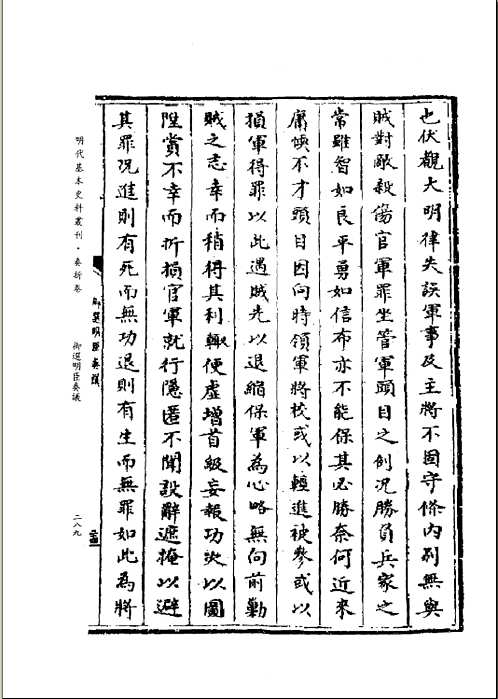 也伏觀大明律失誤軍事及主將不固守條內列無與
賊對敵殺傷官軍罪坐管軍頭目之例況勝負兵家之
常雖智如良平勇如信布亦不能保其必勝奈何近來
庸懦不才頭目因向時領軍將校或以輕進被參或以
損軍得罪以此遇賊先以退縮保軍為心略無向前勦
賊之志幸而稍得其利輙便虛增首級妄報功次以圖
陞賞不幸而折損官軍就行隱匿不聞設辭遮掩以避
其罪況進則有死而無功退則有生而無罪如此為將
御選明臣奏議
明代基本史料叢刊·奏折卷
御選明臣奏議
二八九